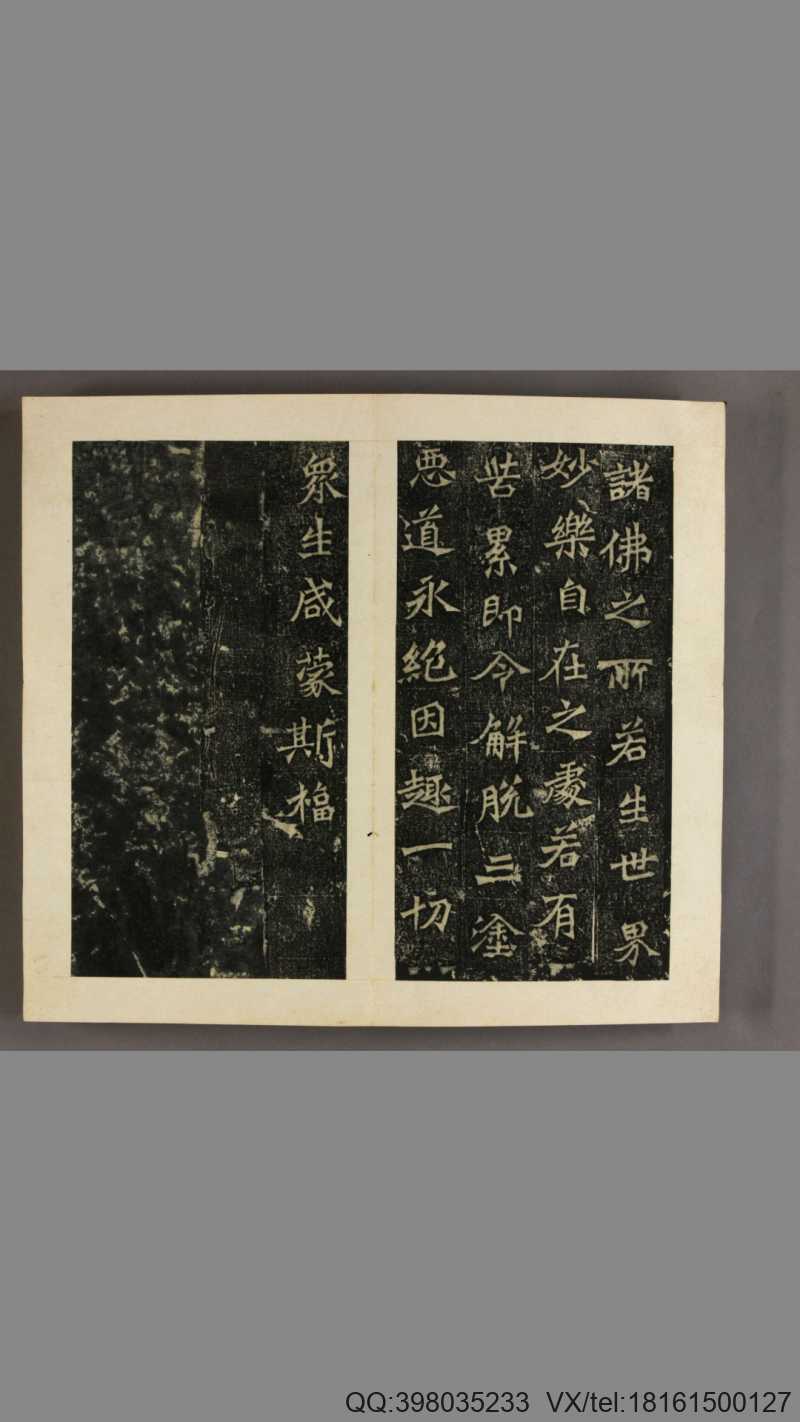 諸佛之所若生世界
妙樂自在之處若有
苦累即令解脫三塗
惡道永絕因趣一切
眾生咸蒙斯福
QQ:398035233 VX/tel:18161500127